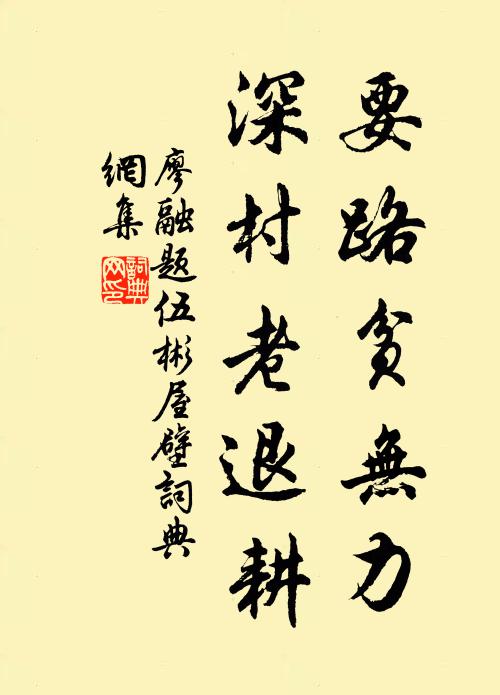 要路貧無力
深村老退耕
廖融題伍彬屋壁詞典
網集
詞典
网印